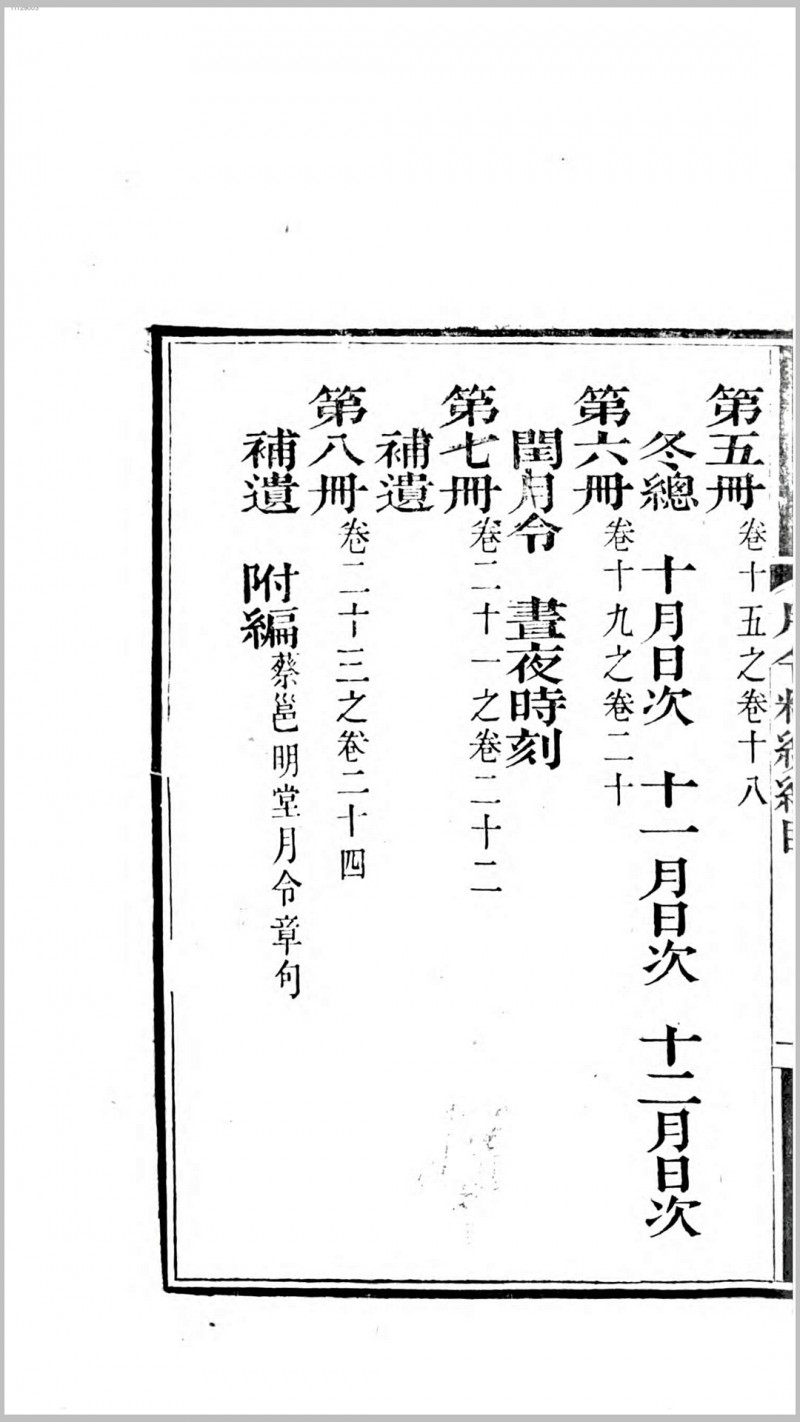 第五冊卷十五之卷十八
冬總 十月日次 十一月日次 十二月日次
第六冊卷十九之卷二十
閏月令 晝夜時刻
第七冊卷二十一之卷二十二
補遺
第八冊卷二十三之卷二十四
補遺 附編蔡邕明堂月令章句